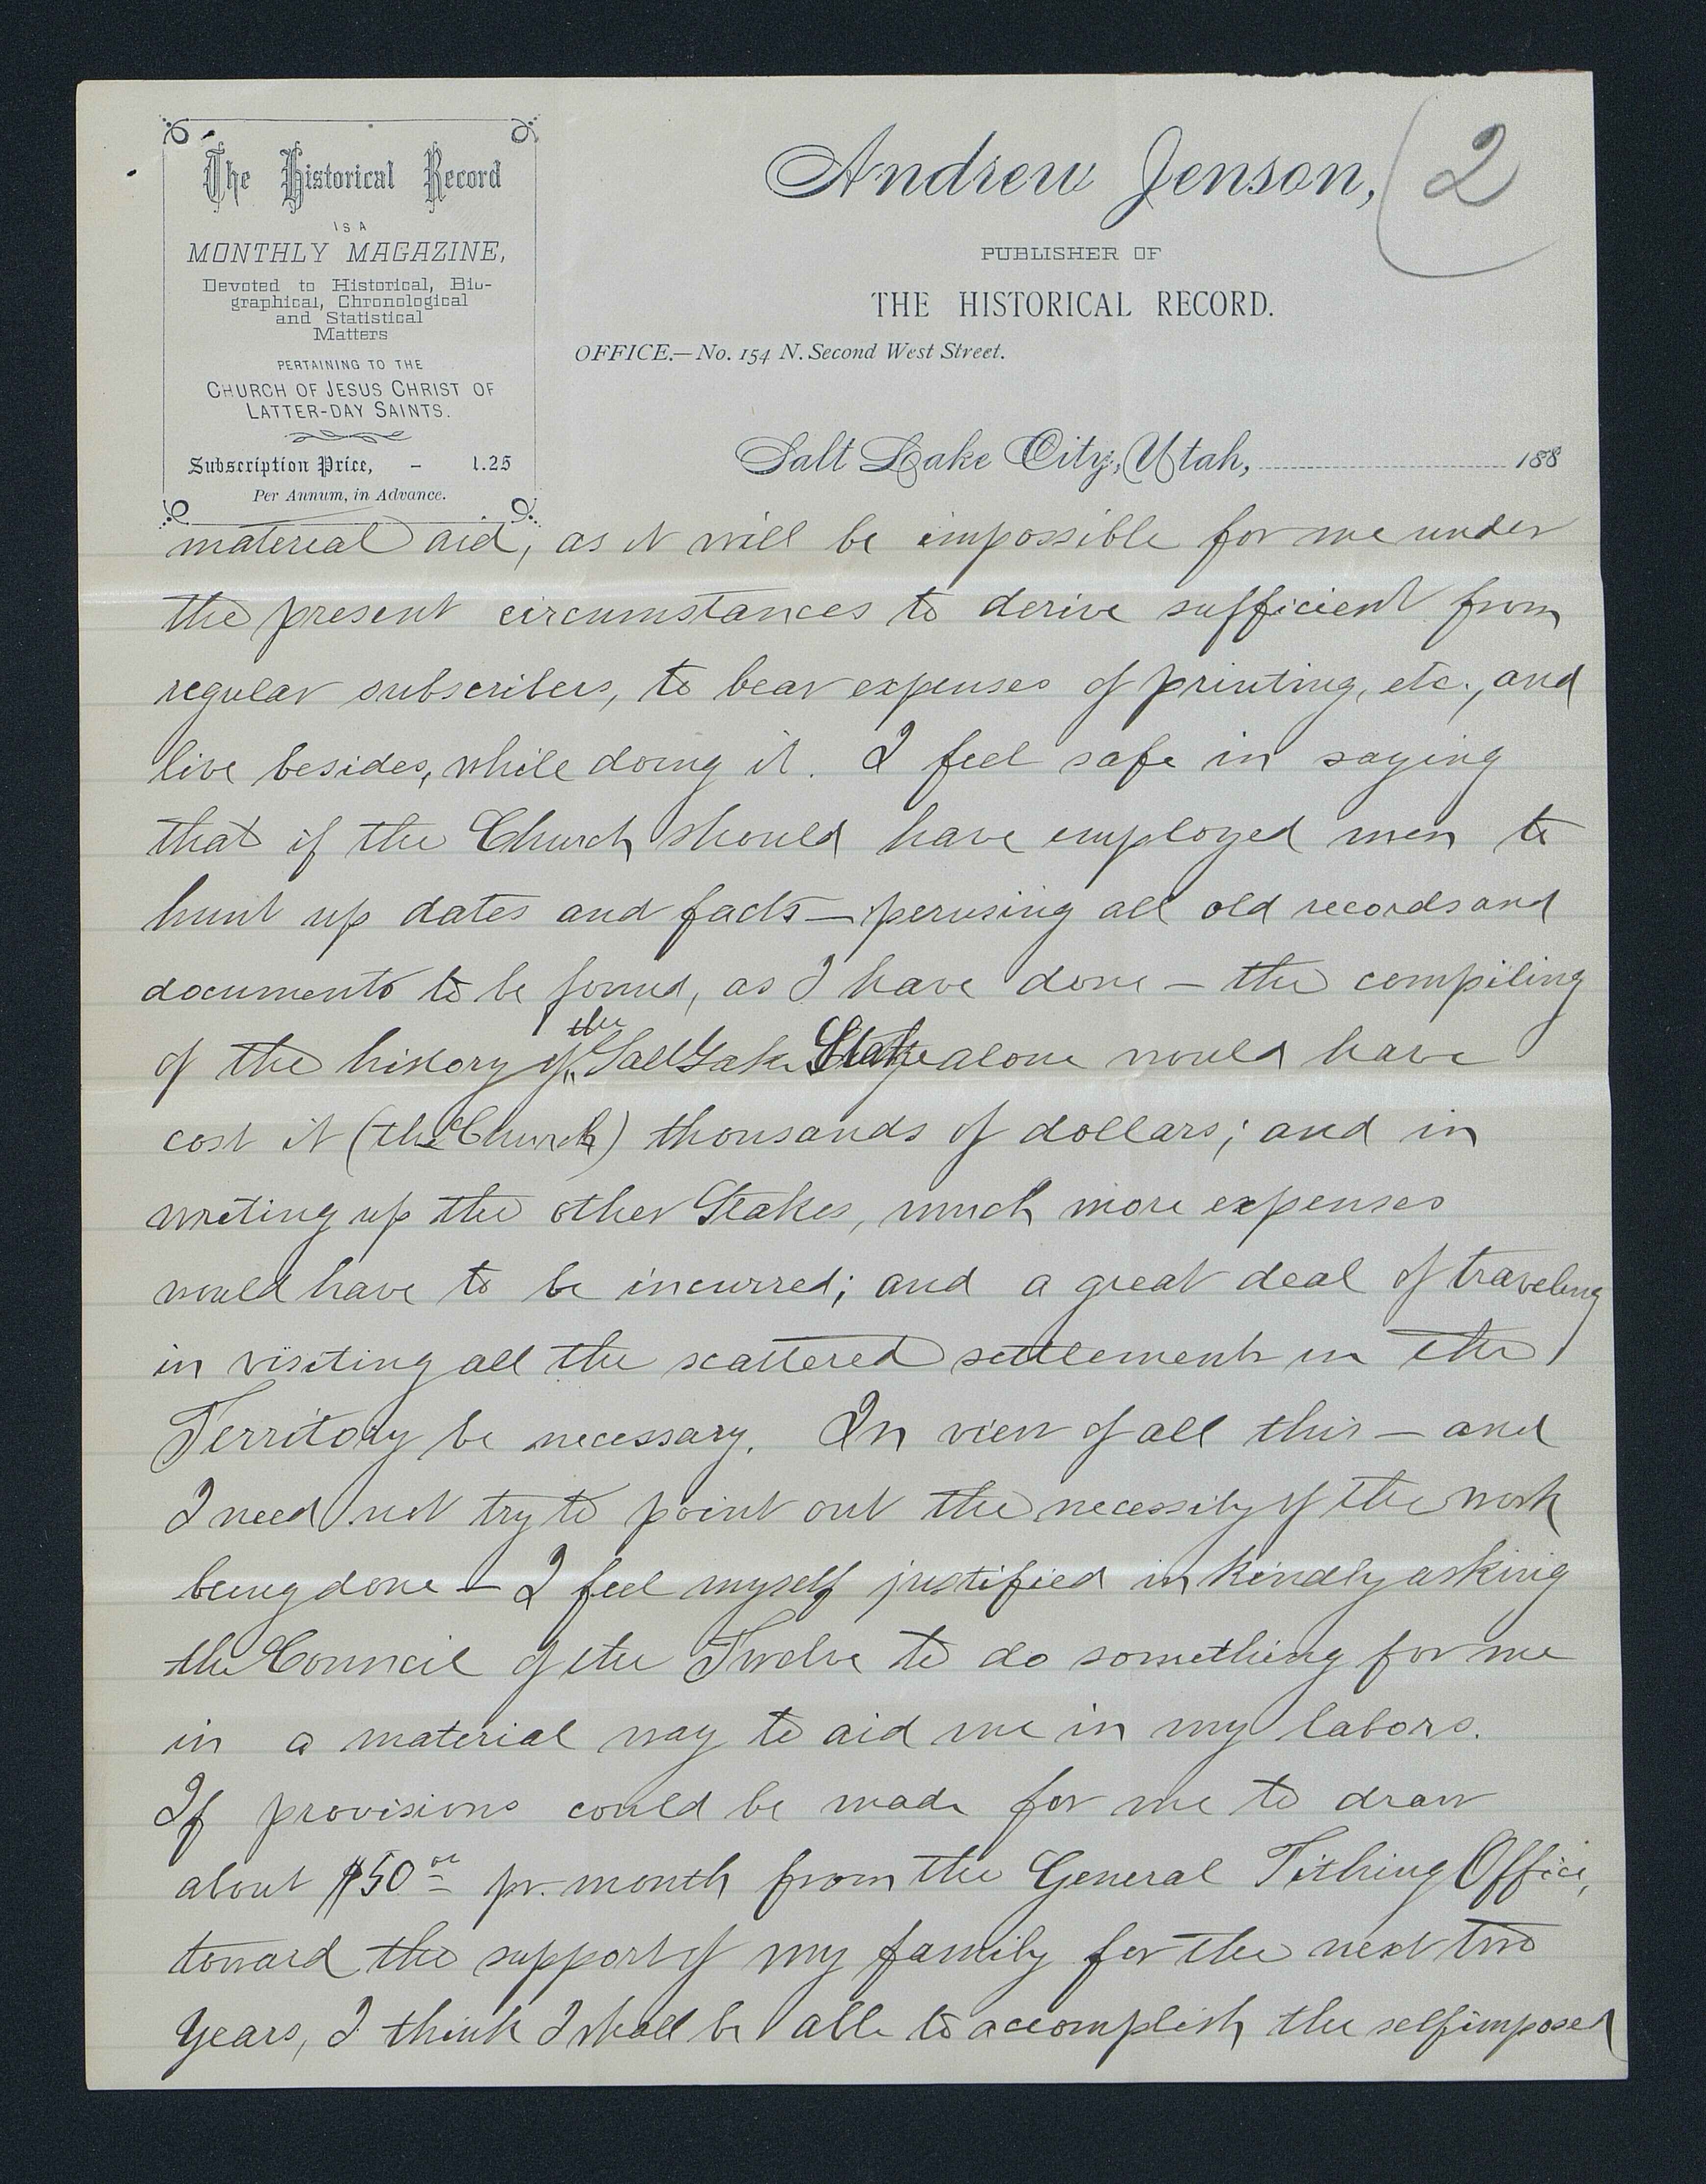 The Historical Record
IS A
MONTHLY MAGAZINE,
Devoted to Historical, Bio-
graphical, Chronological
and Statistical
Matters
PERTAINING TO THE
CHURCH OF JESUS CHRIST OF
LATTER-DAY SAINTS.
Subscription Price, - 1.25
Per Annum, in Advance.
Andrew Jenson,
2
PUBLISHER OF
THE HISTORICAL RECORD.
OFFICE.—No. 154 N. Second West Street.
Salt Lake City, Utah, 188
material aid, as it will be impossible for me under
the present circumstances to derive sufficient from
regular subscribers, to bear expenses of printing, etc., and
live besides, while doing it. I feel safe in saying
that if the Church should have employed men to
hunt up dates and facts — perusing all old records and
documents to be found, as I have done — the compiling
of the history of the Salt Lake Stake alone would have
cost it (the Church) thousands of dollars; and in
writing up the other Stakes, much more expenses
would have to be incurred; and a great deal of traveling
in visiting all the scattered settlements in the
Territory be necessary. In view of all this — and
I need not try to point out the necessity of the work
being done — I feel myself justified in kindly asking
the Council of the Twelve to do something for me
in a material way to aid me in my labors.
If provisions could be made for me to draw
about $50 00 pr. month from the General Tithing Office,
toward the support of my family for the next two
years, I think I shall be able to accomplish the selfimposed